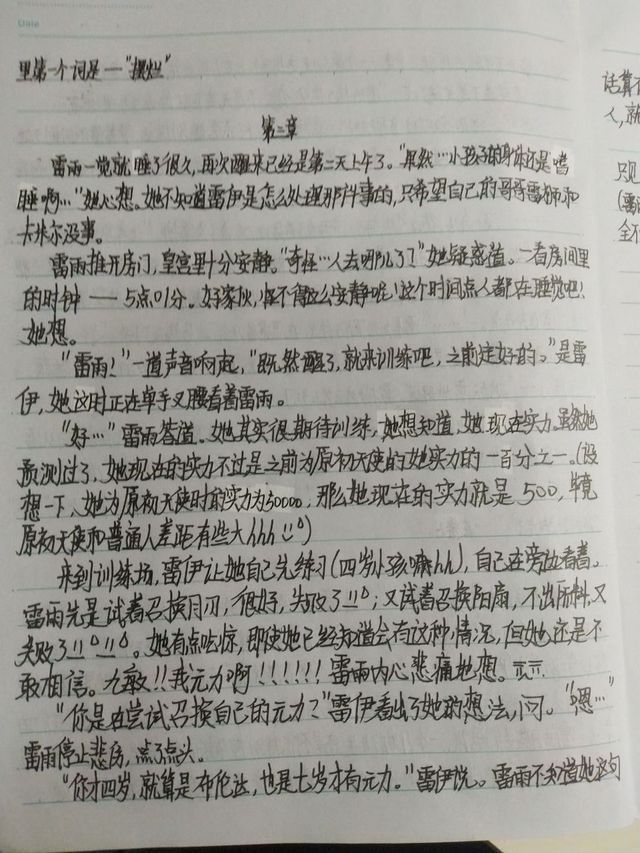 Date
里第一个词是—“摆烂”
第二章
雷雨一觉就睡了很久,再次醒来已经是第二天上午了。“果然…小孩子的身体还是嗜
睡啊…”她心想。她不知道雷伊是怎么处理那件事的,只希望自己的哥哥雷狮和
卡米尔没事。
雷雨推开房门,皇宫里十分安静。“奇怪…人去哪儿了?”她疑惑道。一看房间里
的时钟——5点01分。好家伙,怪不得这么安静呢!这个时间点人都在睡觉吧!
她想。
“雷雨!”一道声音响起,“既然醒了,就来训练吧,之前定好的。”是雷
伊,她这时正在单手叉腰看着雷雨。
“好…”雷雨答道。她其实很期待训练,她想知道,她现在实力。虽然她
预测过了,她现在的实力不过是之前为原初天使的她实力的一百分之一。(设
想一下、她为原初天使时的实力为50000,那么她现在的实力就是500,毕竟
原初天使和普通人差距有些大hhh)
来到训练场,雷伊让她自己先练习(四岁小孩嘛hh),自己在旁边看着。
雷雨先是试着召换月刃,很好,失败了;又试着召换阳扇,不出所料,又
失败了。她有点吃惊,即使她已经知道会有这种情况,但她还是不
敢相信。九敏!!我元力啊!!!!!!雷雨内心悲痛地想。
“你是在尝试召换自己的元力?”雷伊看出了她的想法,问。“嗯…”
雷雨停止悲伤,点了点头。
“你才四岁,就算是布伦达,也是七岁才有元力。”雷伊说。雷雨不知道她这句
话算
人,就
只见
(雷
全